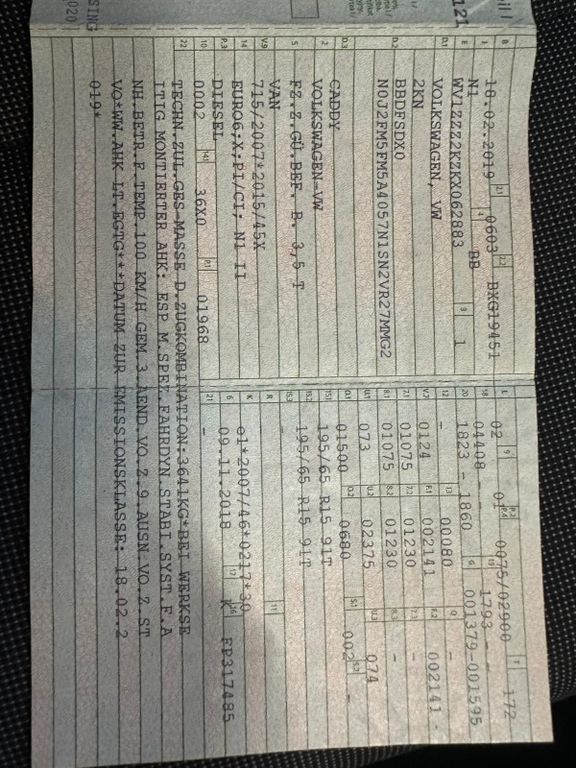 B 18.02.2019 2.1 0603 2.2 BXG19451
J N1 4 BB
E WV1ZZZ2KZKX062883 3 1
D.1 VOLKSWAGEN, VW
2KN
D.2 BBDFSDX0
N0J2FM5FM5A4057N1SN2VR27MMG2
D.3 CADDY
2 VOLKSWAGEN-VW
5 FZ.Z.GÜ.BEF. B. 3,5 T
VAN
V.9 715/2007*2015/45X
14 EURO6;X;PI/CI; N1 II
P.3 DIESEL
10 0002 14.1 36X0 P.1 01968
22 TECHN.ZUL.GES-MASSE D.ZUGKOMBINATION:3641KG*BEI WERKSE
ITIG MONTIERTER AHK: ESP M.SPEZ.FAHRDYN.STABI.SYST.F.A
NH.BETR.F.TEMP.100 KM/H GEM.3.AEND.VO.Z.9.AUSN.VO.Z.ST
VO*WW.AHK LT.EGTG***DATUM ZUR EMISSIONSKLASSE: 18.02.2
019*
L 02 9 01 P.2 P.4 0075/02900 T 172
18 04408 - 19 1793 - -
20 1823 - 1860 G 001379-001595
12 - 13 00080 Q -
V.7 0124 F.1 002141 F.2 002141 -
7.1 01075 7.2 01230 7.3 -
8.1 01075 8.2 01230 8.3 -
U.1 073 U.2 02375 U.3 074
O.1 01500 O.2 0680 S.1 002 S.2 -
15.1 195/65 R15 91T
15.2 195/65 R15 91T
15.3 -
R 11
K e1*2007/46*0217*30
6 09.11.2018 17 K 16 FP317485
21 -
2020